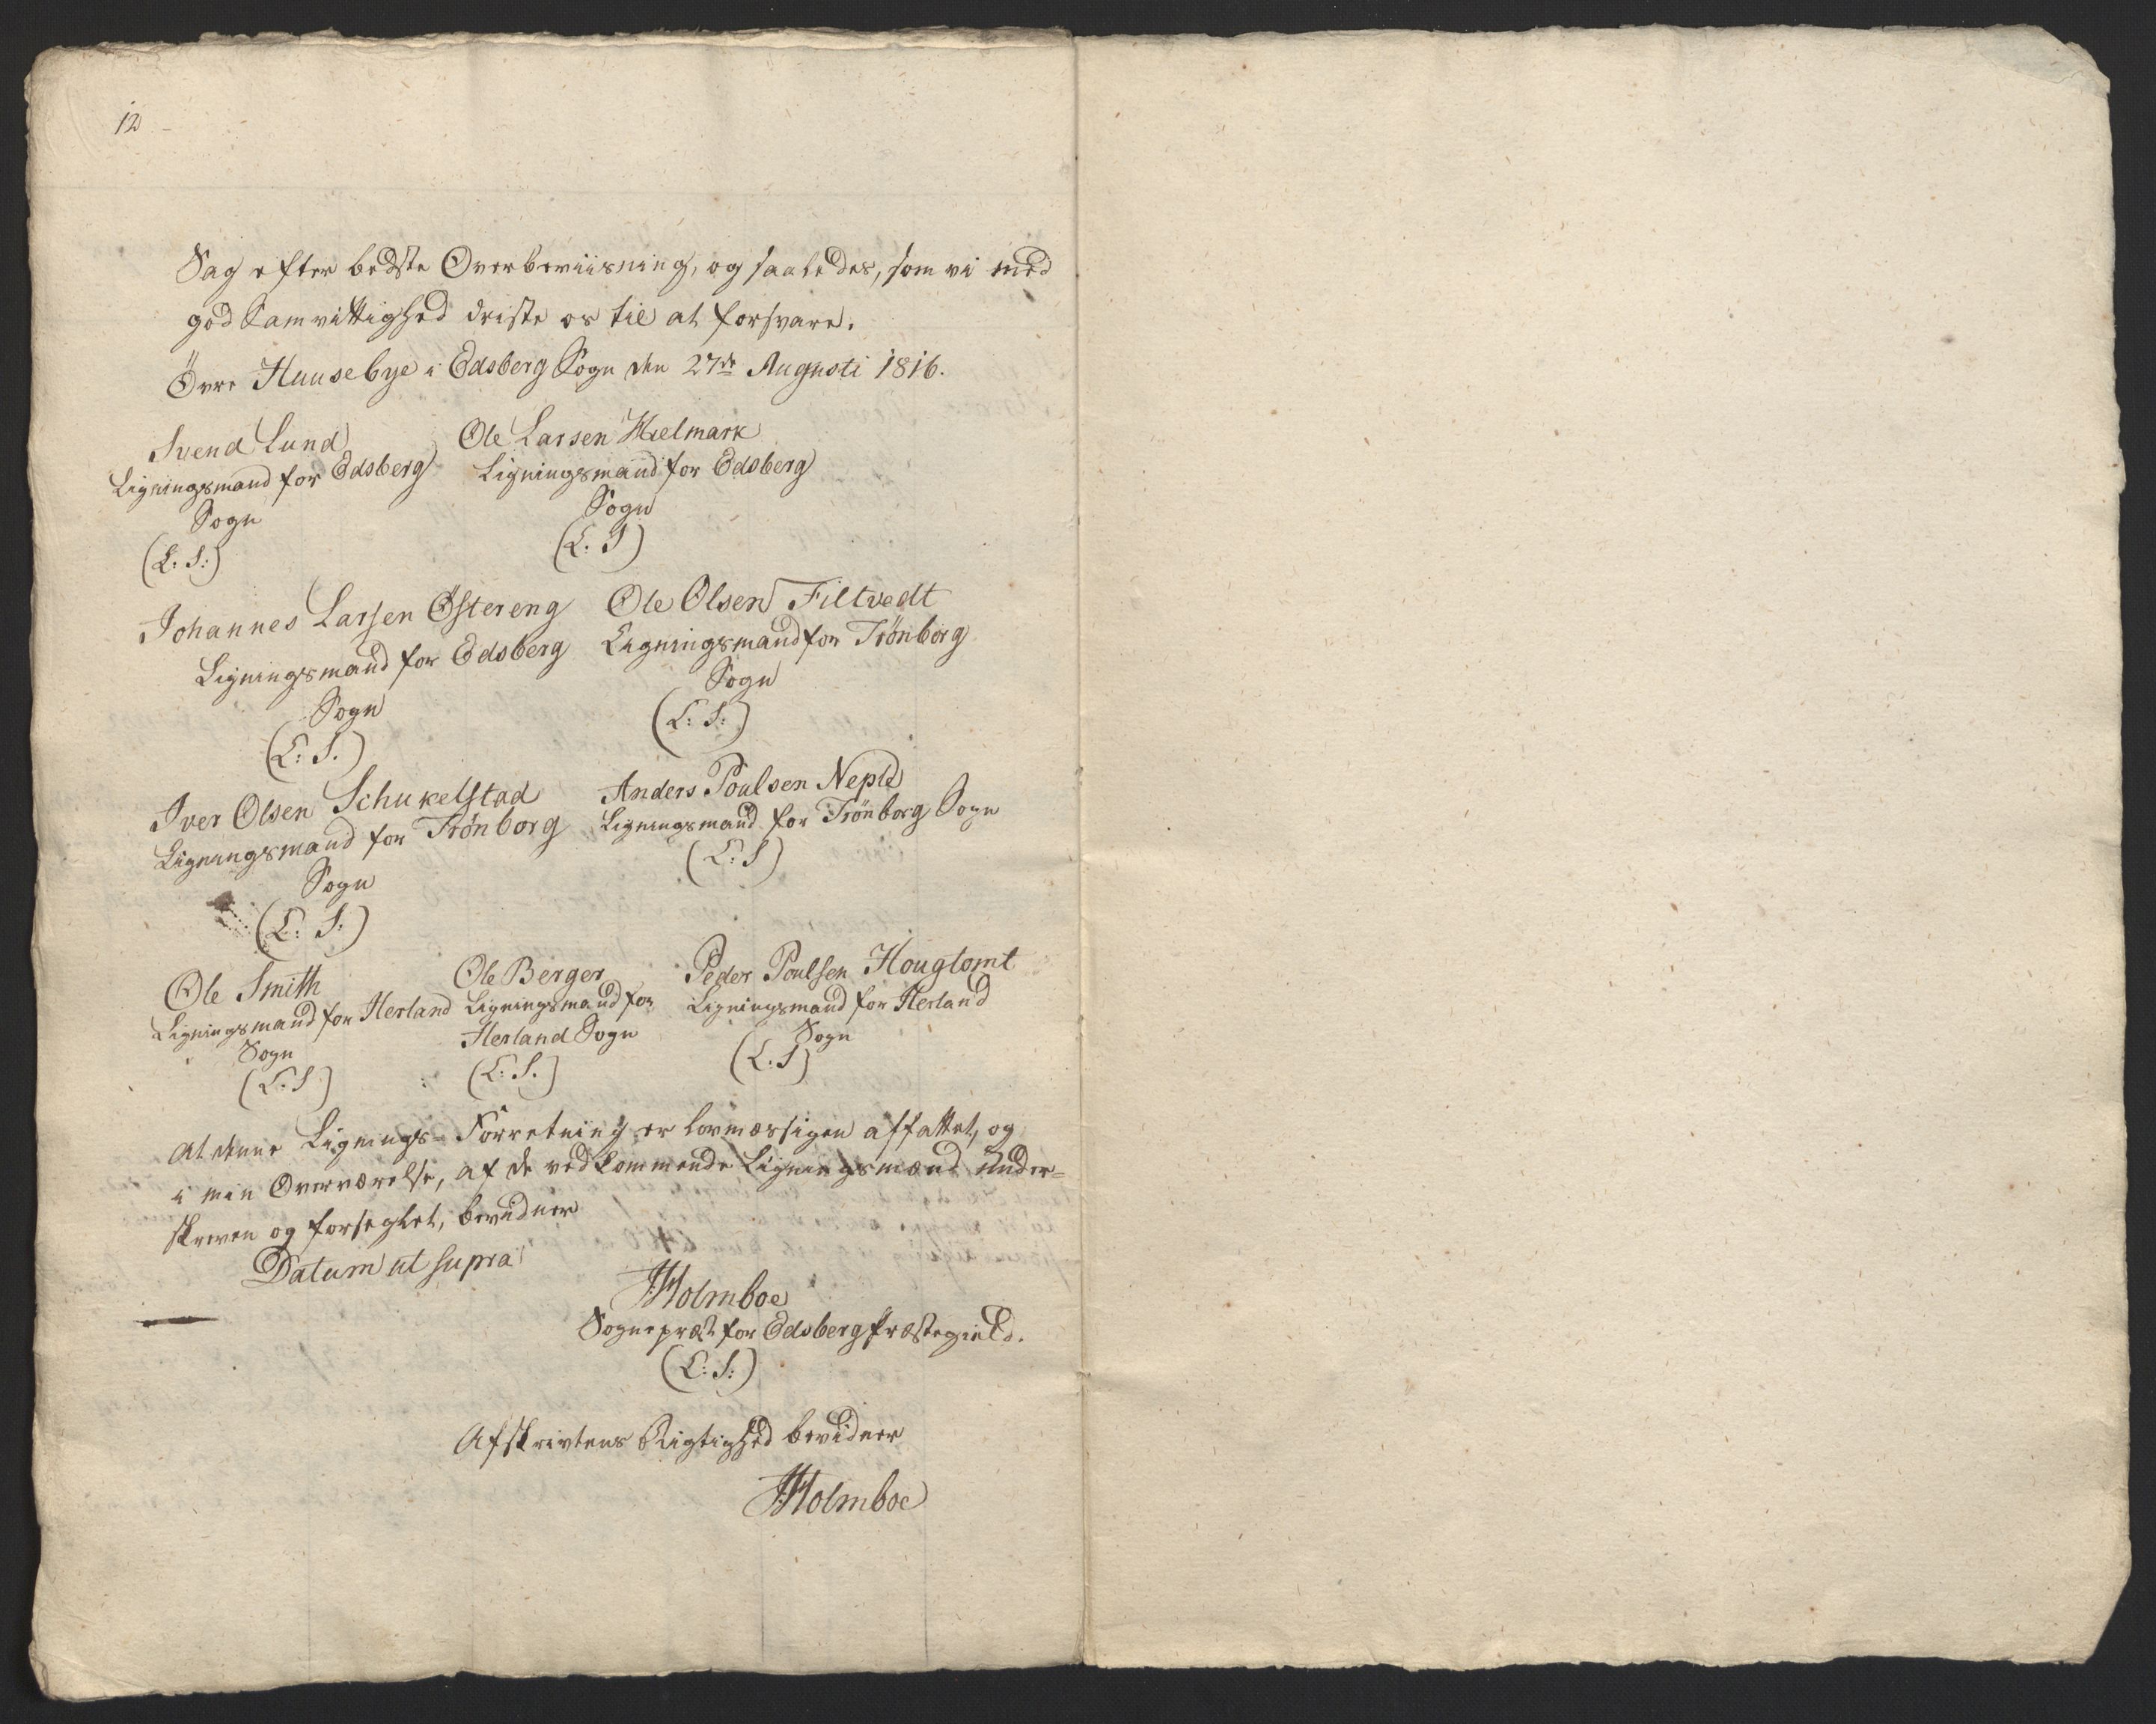 12
Sag efter bedste Overbeviisning, og saaledes, som vi med
god Samvittighed driste os til at forsvare.
Övre Huusebye i Edsberg Sogn den 27de Augusti 1816.
Svend Lund
Ligningsmand for Edsberg
Sogn
(L. S.)
Ole Larsen Mælmark
Ligningsmand for Edsberg
Sogn
(L. S)
Johannes Larsen Östereng
Ligningsmand for Edsberg
Sogn
(L: S.)
Ole Olsen Filtvedt
Ligningsmand for Trönborg
Sogn
(L: S:)
Iver Olsen Schukelstad
Ligningsmand for Trönborg
Sogn
(L: S:)
Anders Poulsen Neple
Ligningsmand for Trönborg Sogn
(L: S)
Ole Smith
Ligningsmand for Herland
Sogn
(L: S)
Ole Berger
Ligningsmand for
Herland Sogn
(L: S.)
Peder Poulsen Houglomt
Ligningsmand for Herland
Sogn
(L: S)
At denne Lignings-Forretning er lovmæssigen affattet, og
i min Overværelse, af de vedkommende Ligningsmænd under-
skreven og forseglet, bevidner
Datum ut supra
JHolmboe
Sognepræst for Edsberg Præstegield.
(L: S:)
Afskrivtens Rigtighed bevidner
JHolmboe